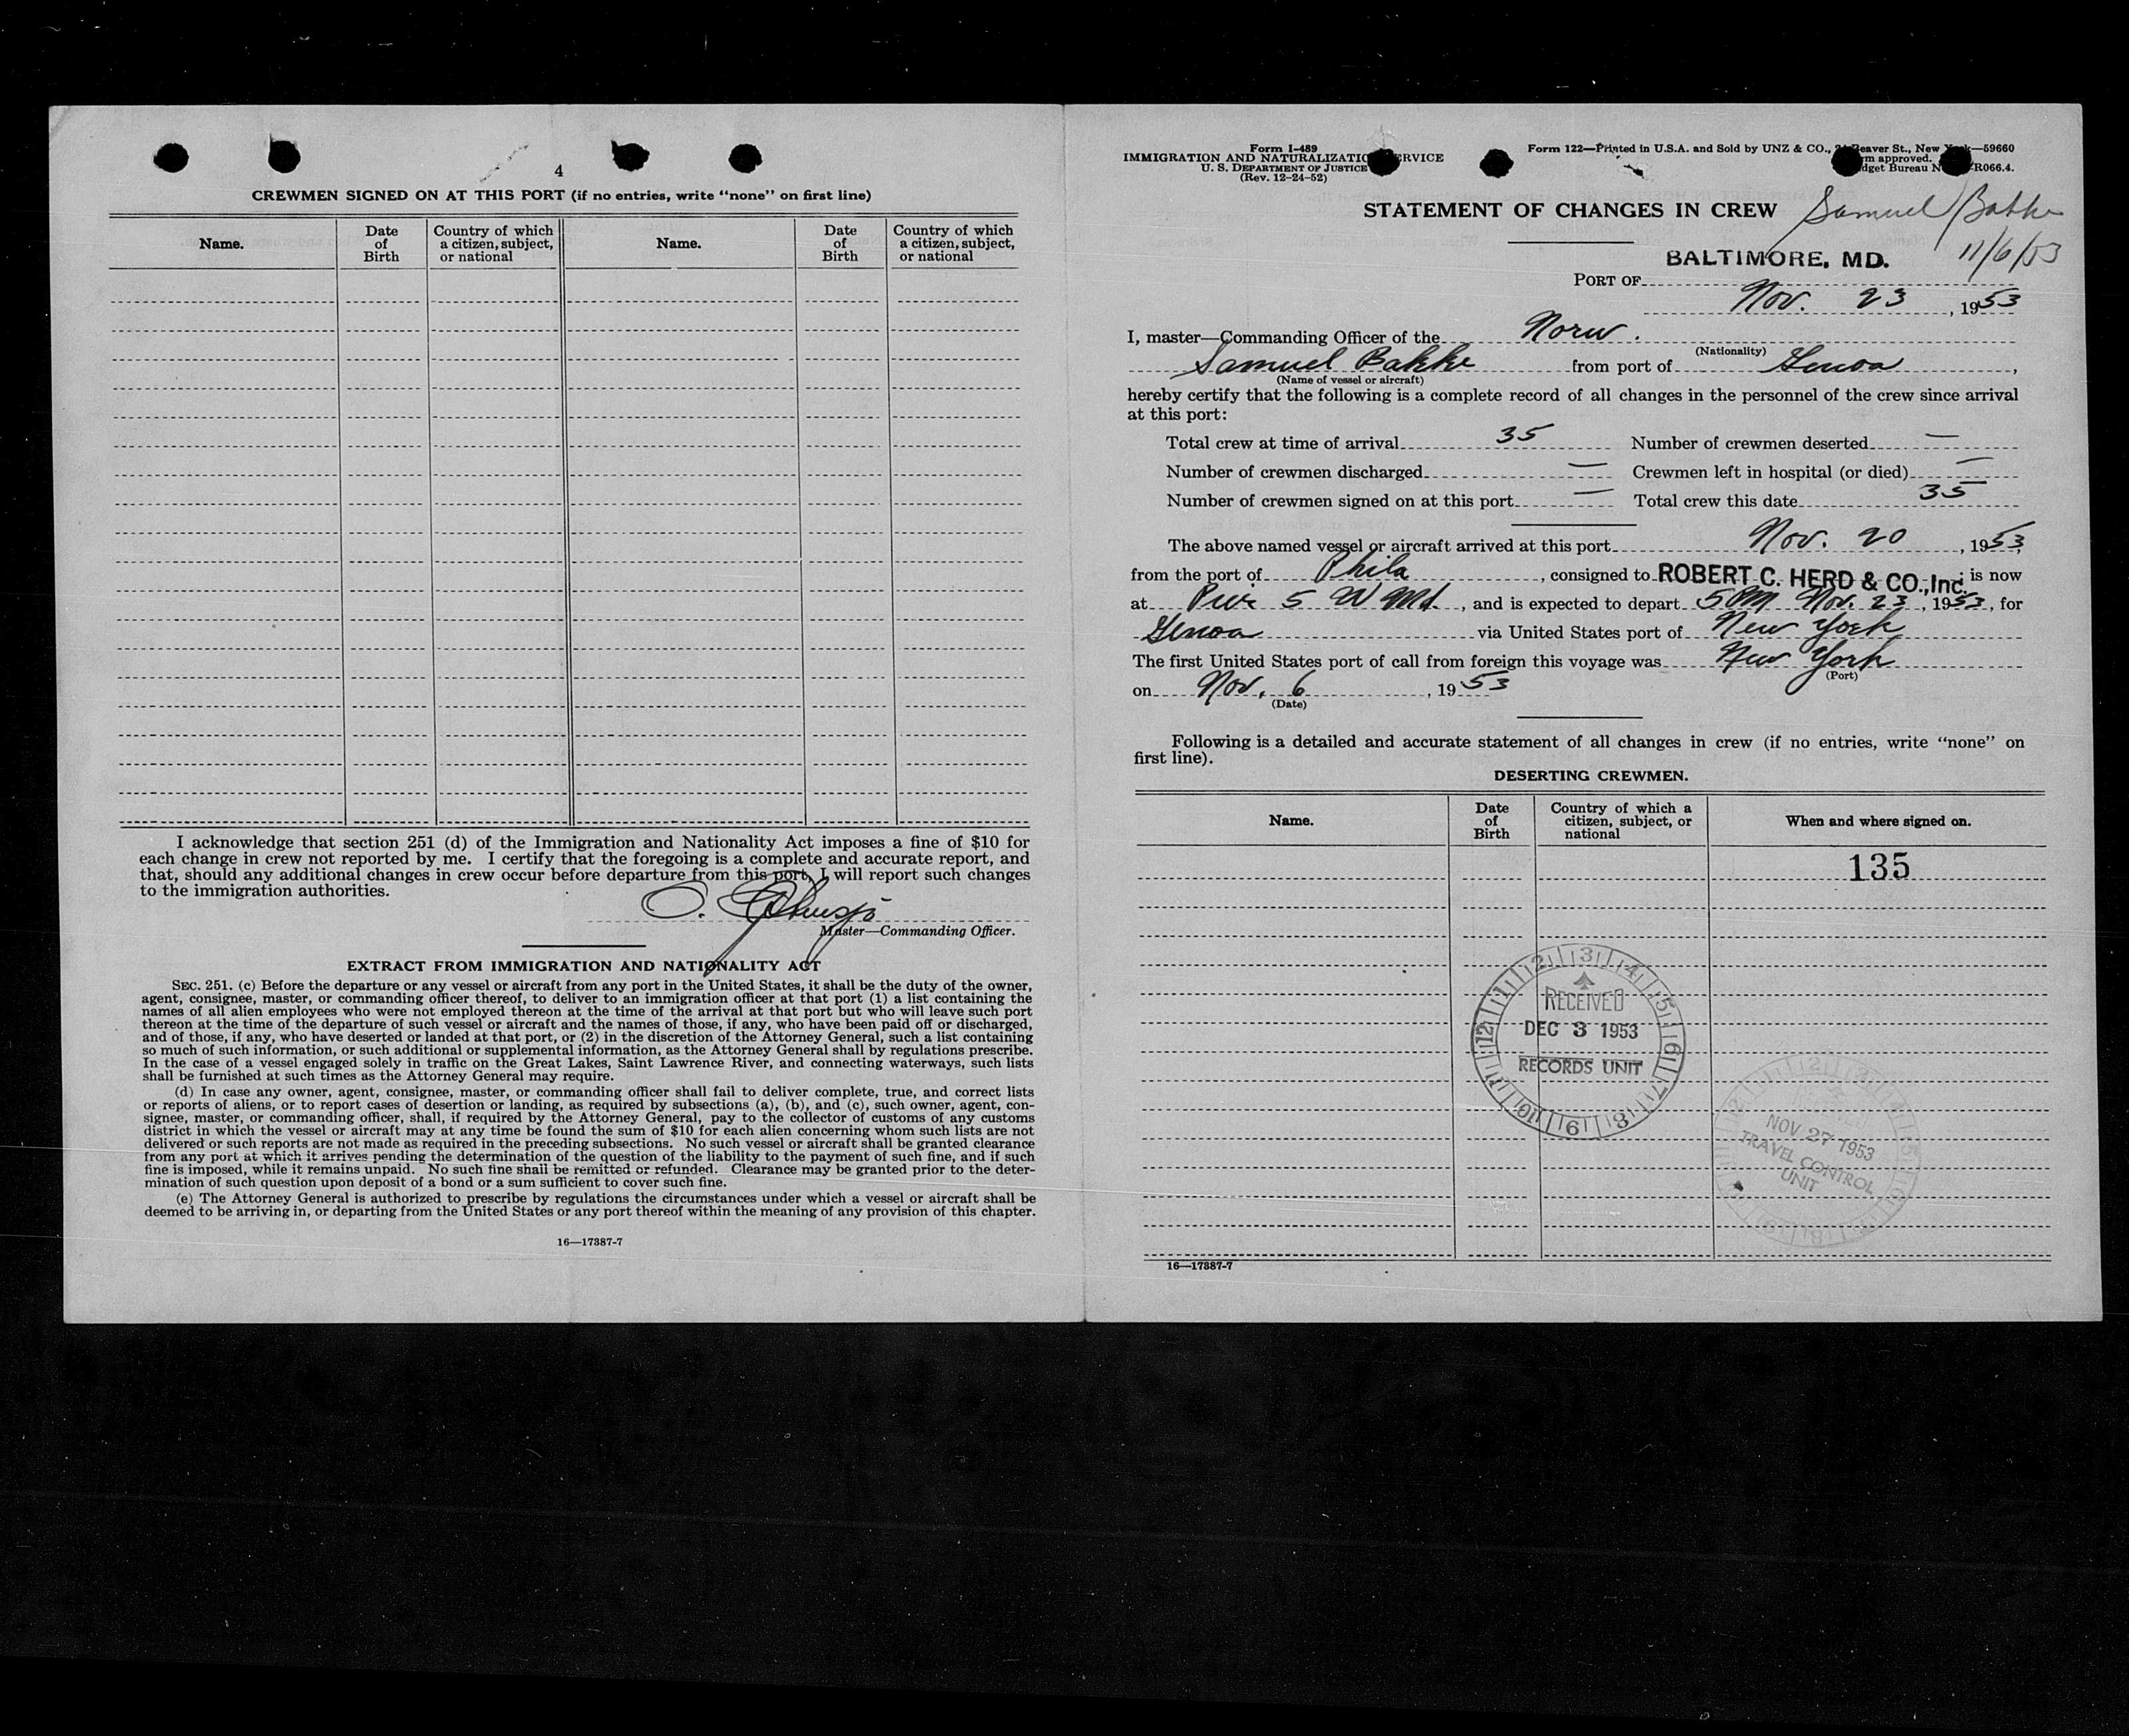 4
CREWMEN SIGNED ON AT THIS PORT (if no entries, write "none" on first line)
Name. Date of Birth Country of which a citizen, subject, or national Name. Date of Birth Country of which a citizen, subject, or national
I acknowledge that section 251 (d) of the Immigration and Nationality Act imposes a fine of $10 for
each change in crew not reported by me. I certify that the foregoing is a complete and accurate report, and
that, should any additional changes in crew occur before departure from this port, I will report such changes
to the immigration authorities.
O.
Master—Commanding Officer.
EXTRACT FROM IMMIGRATION AND NATIONALITY ACT
SEC. 251. (c) Before the departure or any vessel or aircraft from any port in the United States, it shall be the duty of the owner,
agent, consignee, master, or commanding officer thereof, to deliver to an immigration officer at that port (1) a list containing the
names of all alien employees who were not employed thereon at the time of the arrival at that port but who will leave such port
thereon at the time of the departure of such vessel or aircraft and the names of those, if any, who have been paid off or discharged,
and of those, if any, who have deserted or landed at that port, or (2) in the discretion of the Attorney General, such a list containing
so much of such information, or such additional or supplemental information, as the Attorney General shall by regulations prescribe.
In the case of a vessel engaged solely in traffic on the Great Lakes, Saint Lawrence River, and connecting waterways, such lists
shall be furnished at such times as the Attorney General may require.
(d) In case any owner, agent, consignee, master, or commanding officer shall fail to deliver complete, true, and correct lists
or reports of aliens, or to report cases of desertion or landing, as required by subsections (a), (b), and (c), such owner, agent, con-
signee, master, or commanding officer, shall, if required by the Attorney General, pay to the collector of customs of any customs
district in which the vessel or aircraft may at any time be found the sum of $10 for each alien concerning whom such lists are not
delivered or such reports are not made as required in the preceding subsections. No such vessel or aircraft shall be granted clearance
from any port at which it arrives pending the determination of the question of the liability to the payment of such fine, and if such
fine is imposed, while it remains unpaid. No such fine shall be remitted or refunded. Clearance may be granted prior to the deter-
mination of such question upon deposit of a bond or a sum sufficient to cover such fine.
(e) The Attorney General is authorized to prescribe by regulations the circumstances under which a vessel or aircraft shall be
deemed to be arriving in, or departing from the United States or any port thereof within the meaning of any provision of this chapter.
16—17387-7
Form I-489
IMMIGRATION AND NATURALIZATIO RVICE
U. S. DEPARTMENT OF JUSTICE
(Rev. 12-24-52)
Form 122—Printed in U.S.A. and Sold by UNZ & CO., eaver St., New —59660
m approved.
dget Bureau N R066.4.
STATEMENT OF CHANGES IN CREW
Samuel Bakke
11/6/53
BALTIMORE, MD.
PORT OF
Nov. 23, 1953
I, master—Commanding Officer of the Norw.
(Nationality)
Samuel Bakke from port of Genoa,
(Name of vessel or aircraft)
hereby certify that the following is a complete record of all changes in the personnel of the crew since arrival
at this port:
Total crew at time of arrival 35 Number of crewmen deserted —
Number of crewmen discharged — Crewmen left in hospital (or died) —
Number of crewmen signed on at this port — Total crew this date 35
The above named vessel or aircraft arrived at this port Nov. 20, 1953,
from the port of Phila, consigned to ROBERT C. HERD & CO., Inc. is now
at Pier 5 W Md., and is expected to depart 5 PM Nov. 23, 1953, for
Genoa via United States port of New York
The first United States port of call from foreign this voyage was New York
(Port)
on Nov. 6, 1953
(Date)
Following is a detailed and accurate statement of all changes in crew (if no entries, write "none" on
first line).
DESERTING CREWMEN.
Name. Date of Birth Country of which a citizen, subject, or national When and where signed on.
135
12 1 2 3 4 5 6 7 8 9 10 11
RECEIVED
DEC 3 1953
RECORDS UNIT
NOV 27 1953
TRAVEL CONTROL
UNIT
16—17387-7